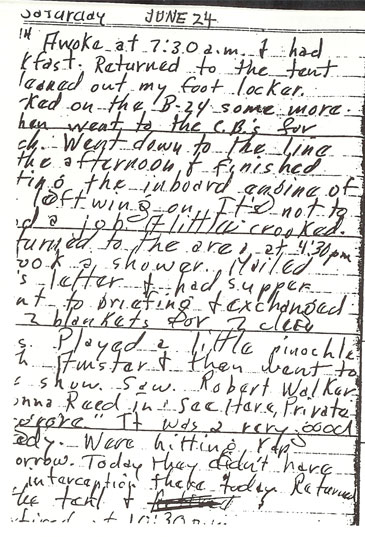 Saturday JUNE 24
Awoke at 7:30 a.m. & had
kfast. Returned to the tent
leaned out my foot locker.
ked on the B-24 some more.
hen went to the C.B.'s for
ch. Went down to the line
the afternoon & finished
ting the inboard engine of
left wing on. It's not to
d a job. A little crooked.
turned to the area at 4:30 pm
ook a shower. Mailed
's letter & had supper
nt to briefing & exchanged
2 blankets for 2 clean
s. Played a little pinochle
h Amster & then went to
e show. Saw Robert Walker
onna Reed in "See Here, Private
grove. It was a very good
edy. Were hitting Yap
orrow. Today they didn't have
interception there today. Returned
the tent &
tired at 10:30 p.m.